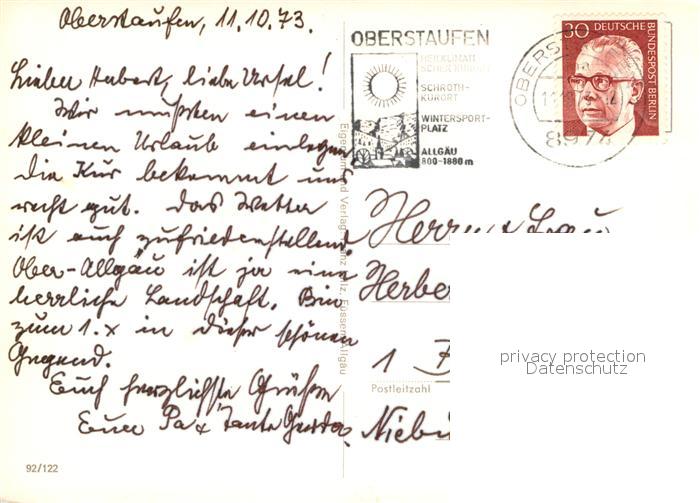 Oberstaufen, 11.10.73.
Lieber Hubert, liebe Ursel!
Wir mußten einen
kleinen Urlaub einlegen
die Kur bekommt uns
recht gut. Das Wetter
ist auch zufriedenstellend
Ober-Allgäu ist ja eine
herrliche Landschaft. Bin
zum 1.x in dieser schönen
Gegend.
Euch herzlichste Grüße
Eure Pa & Tante Gerda.
92/122
Eigentum und Verlag Füssen-Allgäu
OBERSTAUFEN
HEILKLIMAT
SCHROTH-
KURORT
WINTERSPORT-
PLATZ
ALLGÄU
800-1880 m
30 DEUTSCHE
BUNDESPOST BERLIN
8974
Herrn & Frau
1
Postleitzahl
privacy protection
Datenschutz